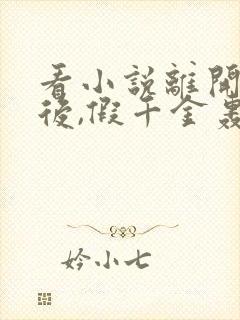 看小說離開
後,假千金轟
妗小七